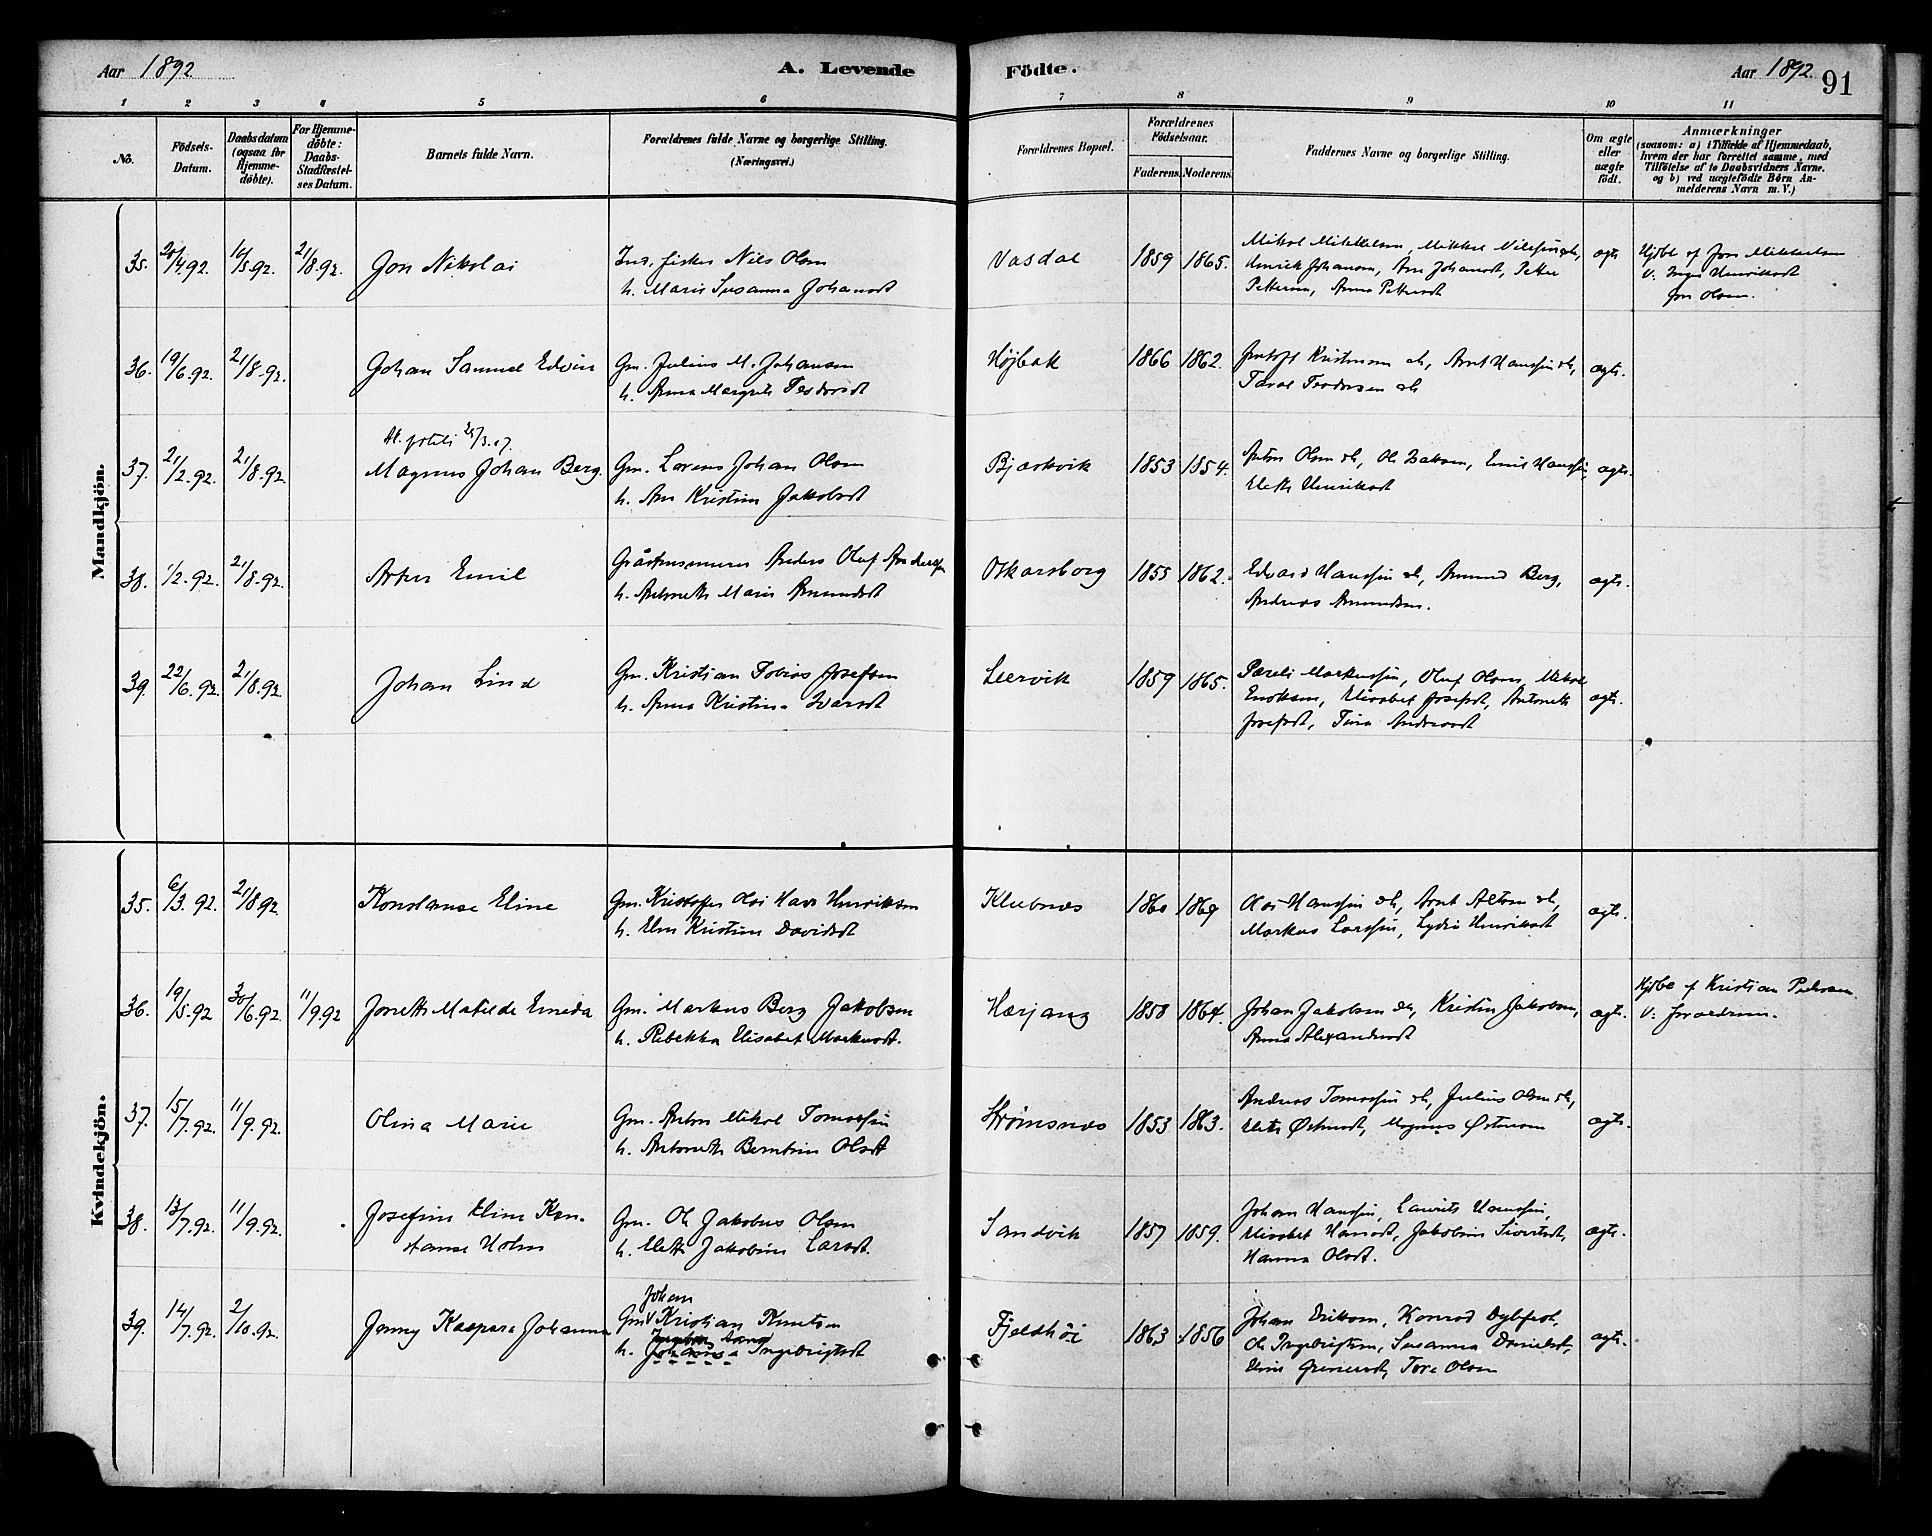 Aar 1892
A. Levende
Födte.
Aar 1892.
91
1 2 3 4 5 6 7 8 9 10 11
No.
Födsels-
Datum.
Daabsdatum
(ogsaa for
Hjemme-
döbte).
For Hjemme-
döbte:
Daabs-
Stadfæstel-
ses Datum.
Barnets fulde Navn.
Forældrenes fulde Navne og borgerlige Stilling.
(Næringsvei.)
Forældrenes Bopæl.
Forældrenes
Födselsaar.
Faderens. Moderens.
Faddernes Navne og borgerlige Stilling.
Om ægte
eller
uægte
födt.
Anmærkninger
(saasom: a) i Tilfælde af Hjemmedaab,
hvem der har forrettet samme, med
Tilföielse af to Daabsvidners Navne.
og b) ved uægtefödte Börn An-
melderens Navn m. V.)
Mandkjön.
35. 20/4 92. 10/5 92. 21/8 92. Jon Nikolai
fisker Nils Olsen
h. Marie Susanna Johansdt
Vasdal 1859 1865.
Mikkel Nilssen
Henrik Johansen, Ane Johansdt, Petter
Pettersen, Anna Pettersdt
ægte
Hjdbt af Jon Mikkelsen
v. Inger Henriksdt
Jon Olsen.
36. 19/6 92. 21/8 92. Johan Samuel Edvin
Gm. Julius M. Johansen
h. Anna Margrete
Højbak 1866 1862.
Kristensen oh, Arnt Hanssen oh,
ægte.
37. 21/2 92. 21/8 92
Magnus Johan Berg
Gm. Lorens Johan Olsen
h. Ane Kristine Jakobsdt
Bjærkvik 1853 1854.
Anton Olsen oh, Emil Hanssen
Henriksdt
ægte.
38. 1/2 92. 21/8 92. Artur Emil
Anders Oluf Andersen
h. Antonette Marie Amundsdt
Oskarsborg 1855 1862.
Edvard Hanssen oh, Amund Berg,
Andreas Amundsen.
ægte.
39. 22/6 92. 21/8 92. Johan Lind
Gm. Kristian Tobias Josefsen
h. Anna Kristine Ivarsdt
Leervik 1859 1865.
Pareli Markussen, Oluf Olsen, Mikal
Enoksen, Elisabet Josefsdt, Antonette
Josefsdt, Tina Andersdt
ægte.
Kvindekjön.
35. 6/3 92. 21/8 92 Konstanse Eline
Gm. Kristofer Olai Hans Henriksen
h. Elen Kristine Davidsdt
Klubnæs 1860 1869
Olai Hanssen oh, Arnt
Markus Larssen, Lydia Henriksdt
ægte.
36. 19/5 92 30/6 92. 11/9 92 Jonette Matilde Emeda
Gm. Markus Berg Jakobsen
h. Rebekka Elisabet Markusdt.
Herjang 1858 1864.
Johan Jakobsen oh, Kristin Jakobsen,
Anna Alexandersdt
ægte.
Hjdbt af Kristian Pedersen
v. Forældrene.
37. 15/7 92. 11/9 92. Olina Marie
Gm. Anton Mikal Tomassen
h. Antonette Berntine Olsdt
Strømsnæs 1853 1863.
Andreas Tomassen oh, Julius Olsen oh,
Østensdt, Magnus Østensen
ægte.
38. 13/7 92. 11/9 92. Josefine Eline Kon-
stanse Holm
Gm. Ole Jakobus Olsen
h. Elette Jakobine Larsdt.
Sandvik 1857 1859.
Johan Hanssen, Laurits Hanssen,
Elisabet Hansdt, Jakobine Sivertsdt,
Hanna Olsdt.
ægte.
39. 14/7 92. 2/10 92. Jenny Kaspara Johanna
Johan
Gm Kristian Knutsen
h. Johanna Ingebrigtsdt
Fjeldhøi 1863 1856
Johan Eriksen, Konrad Dybfest,
Ole Ingebrigtsen, Susanna Danielsdt,
Tore Olsen
ægte.